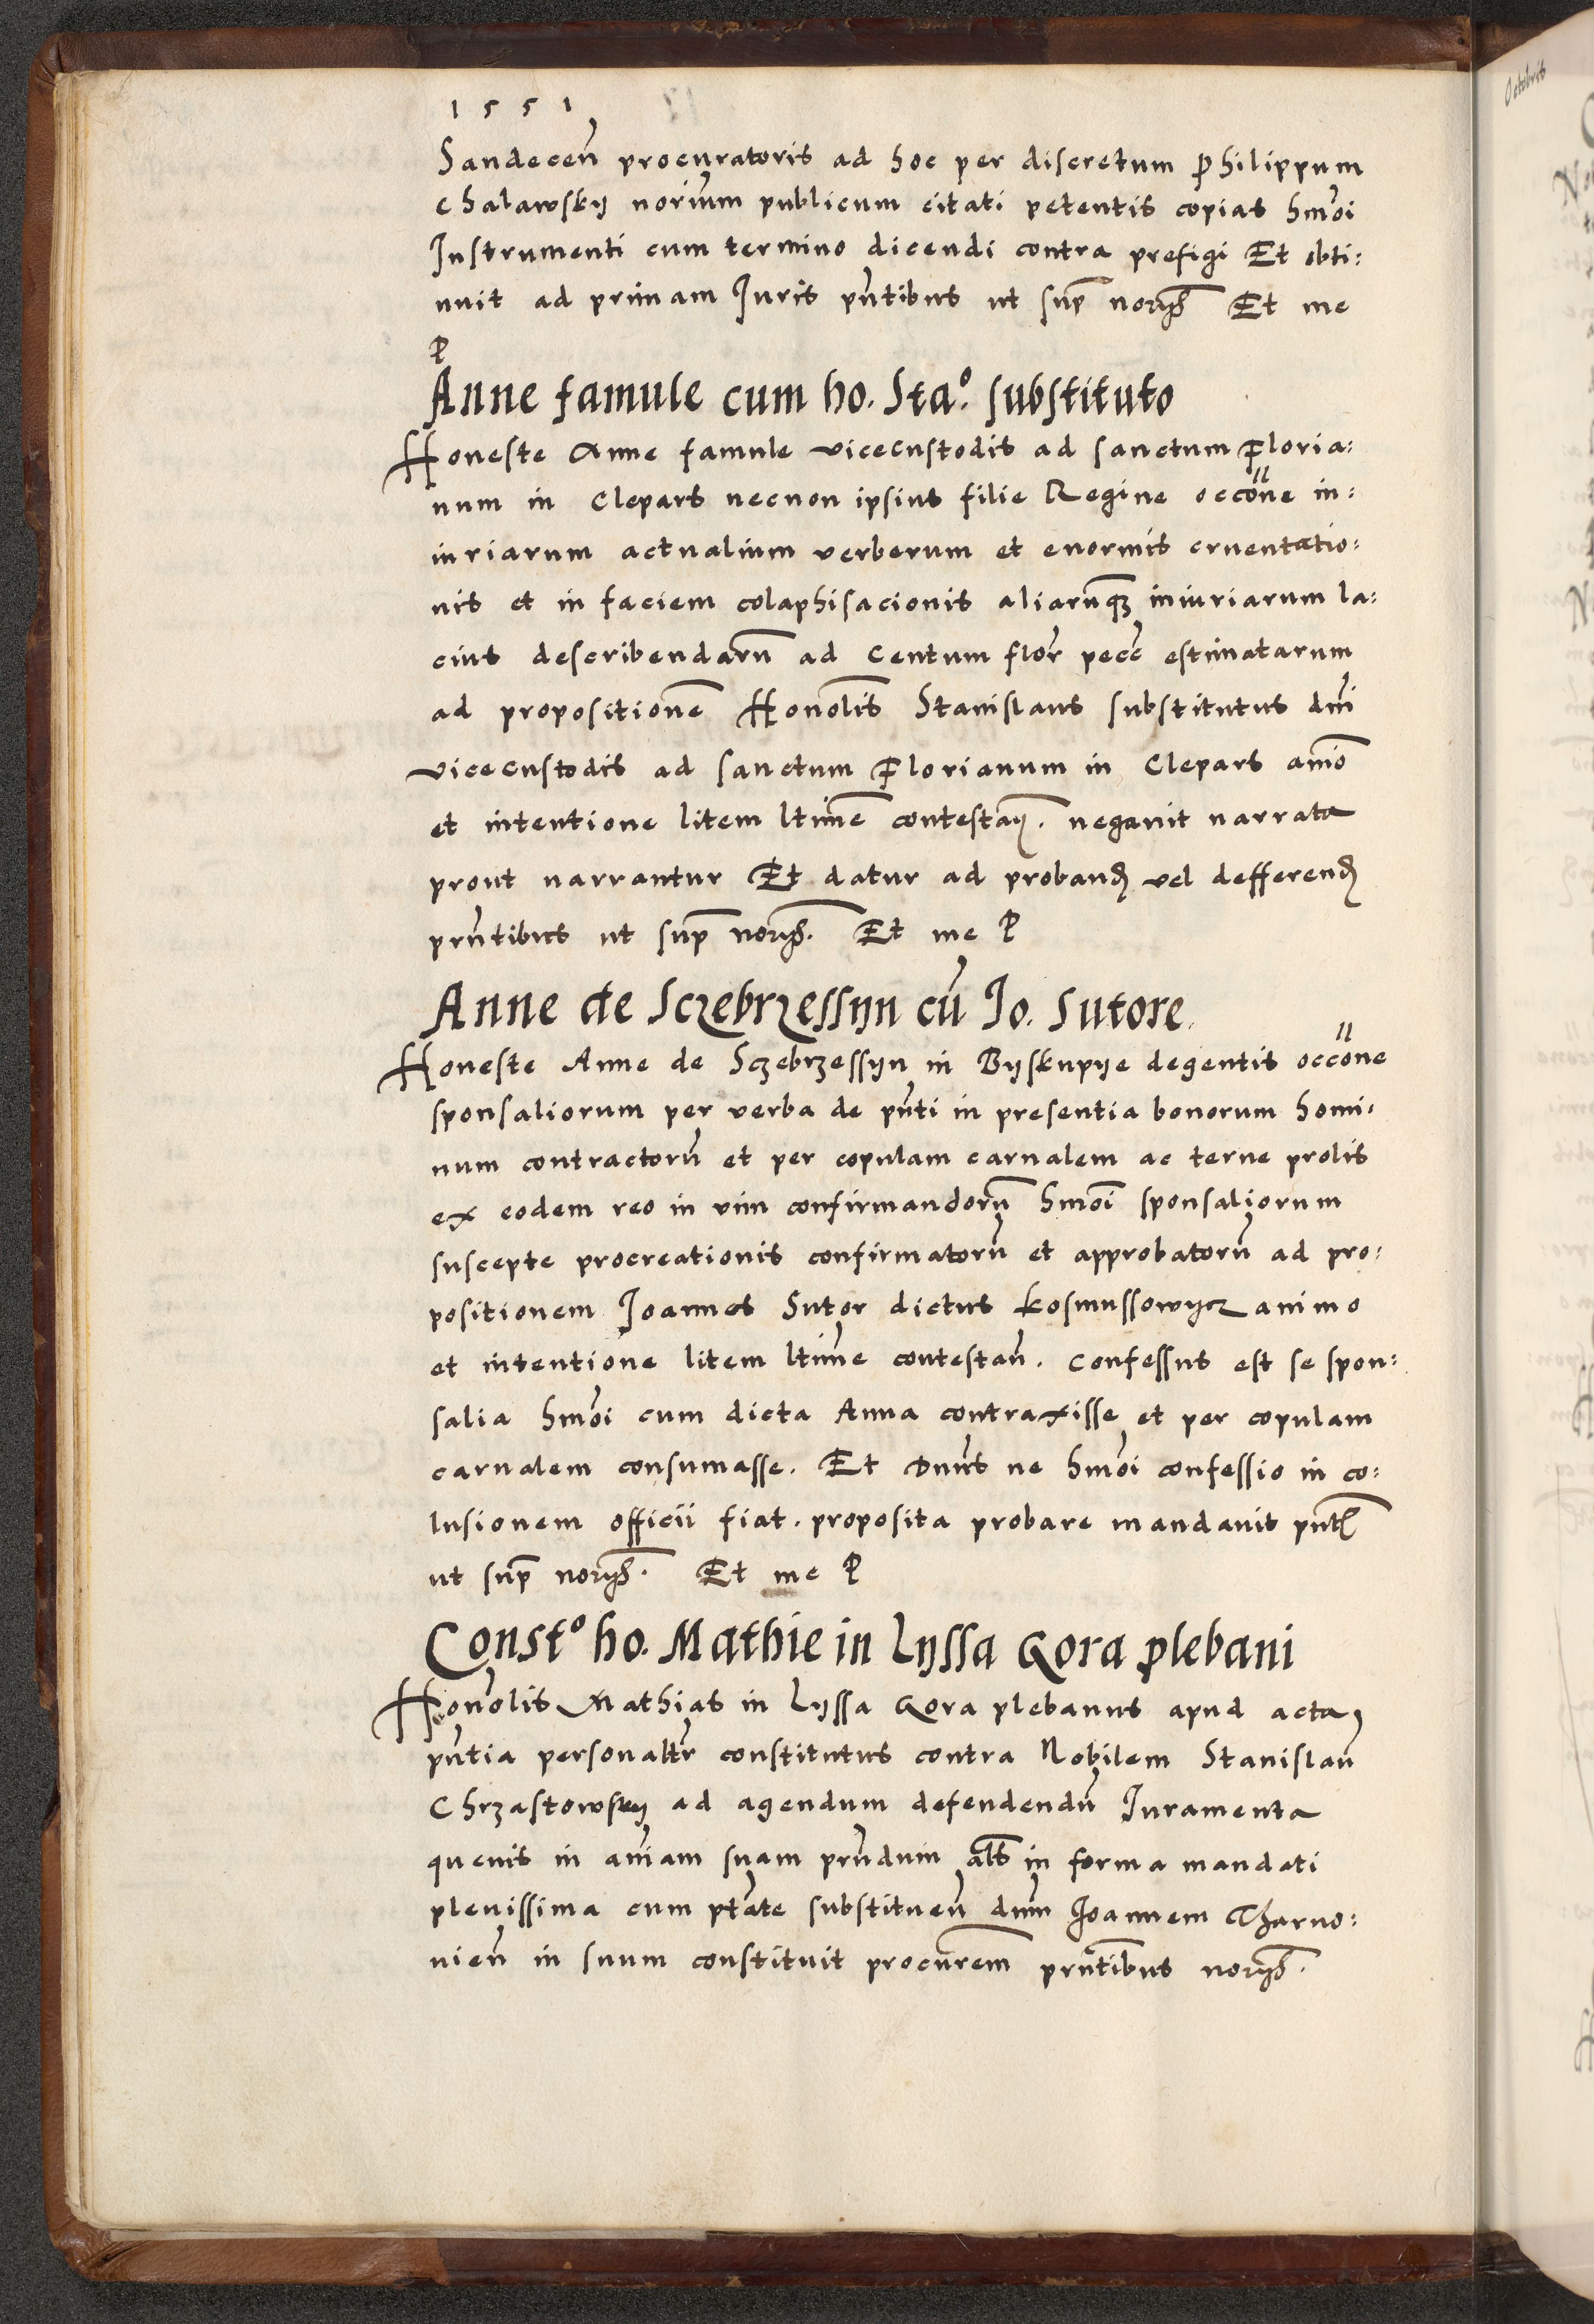 1551
Sandecen̄ procuratoris ad hoc per discretum Philippum
Chalawskij norium publicum citati petentis copias hmoi
Instrumenti cum termino dicendi contra prefigi Et obti:
nuit ad primam Iuris pn̄tibus ut sup̄ Et me
P
Anne famule cum ho. Sta.º substituto
Honeste Anne famule vicecustodis ad sanctum Floria:
num in Clepars necnon ipsius filie Regine occōne in:
iuriarum actualium verberum et enormis cruentatio:
nis et in faciem colaphisacionis aliarūq3 iniuriarum la:
cius describendarū ad Centum flor pecc estimatarum
ad propositionē Honolis Stanislaus substitutus dn̄i
vicecustodis ad sanctum Florianum in Clepars anīo
et intentione litem ltīme negauit narrata
prout narrantur Et datur ad proband vel defferend
prn̄tibus ut sup̄ Et me P
Anne de Sczebrzessyn cū Jo. Sutore.
Honeste Anne de Sczebrzessijn in Bijskupije degentis occōne
sponsaliorum per verba de pn̄ti in presentia bonorum homi:
num contractorū et per copulam carnalem ac terne prolis
ex eodem reo in vim confirmandorū hmoi sponsaliorum
suscepte procreationis confirmatorū et approbatorū ad pro:
positionem Joannes Sutor dictus Kosmussowijcz animo
et intentione litem ltīme contestan̄. Confessus est se spon:
salia hmoi cum dicta Anna contraxisse et per copulam
carnalem consumasse. Et Dn̄us ne hmoi confessio in co:
lusionem officii fiat. proposita probare mandauit pn̄t
ut sup̄ Et me P
Constº ho. Mathie in Lijssa Gora plebani
Honolis Mathias in Lijssa Gora plebanus apud acta
pn̄tia personaltr constitutus contra Nobilem Stanislaū
Chrzastowskij ad agendum defendendū Iuramenta
queuis in anīam suam prn̄dum als in forma mandati
plenissima cum ptāte substituen̄ dn̄m Joannem Tharno:
uien̄ in suum constituit procurem prn̄tibus
Octobris